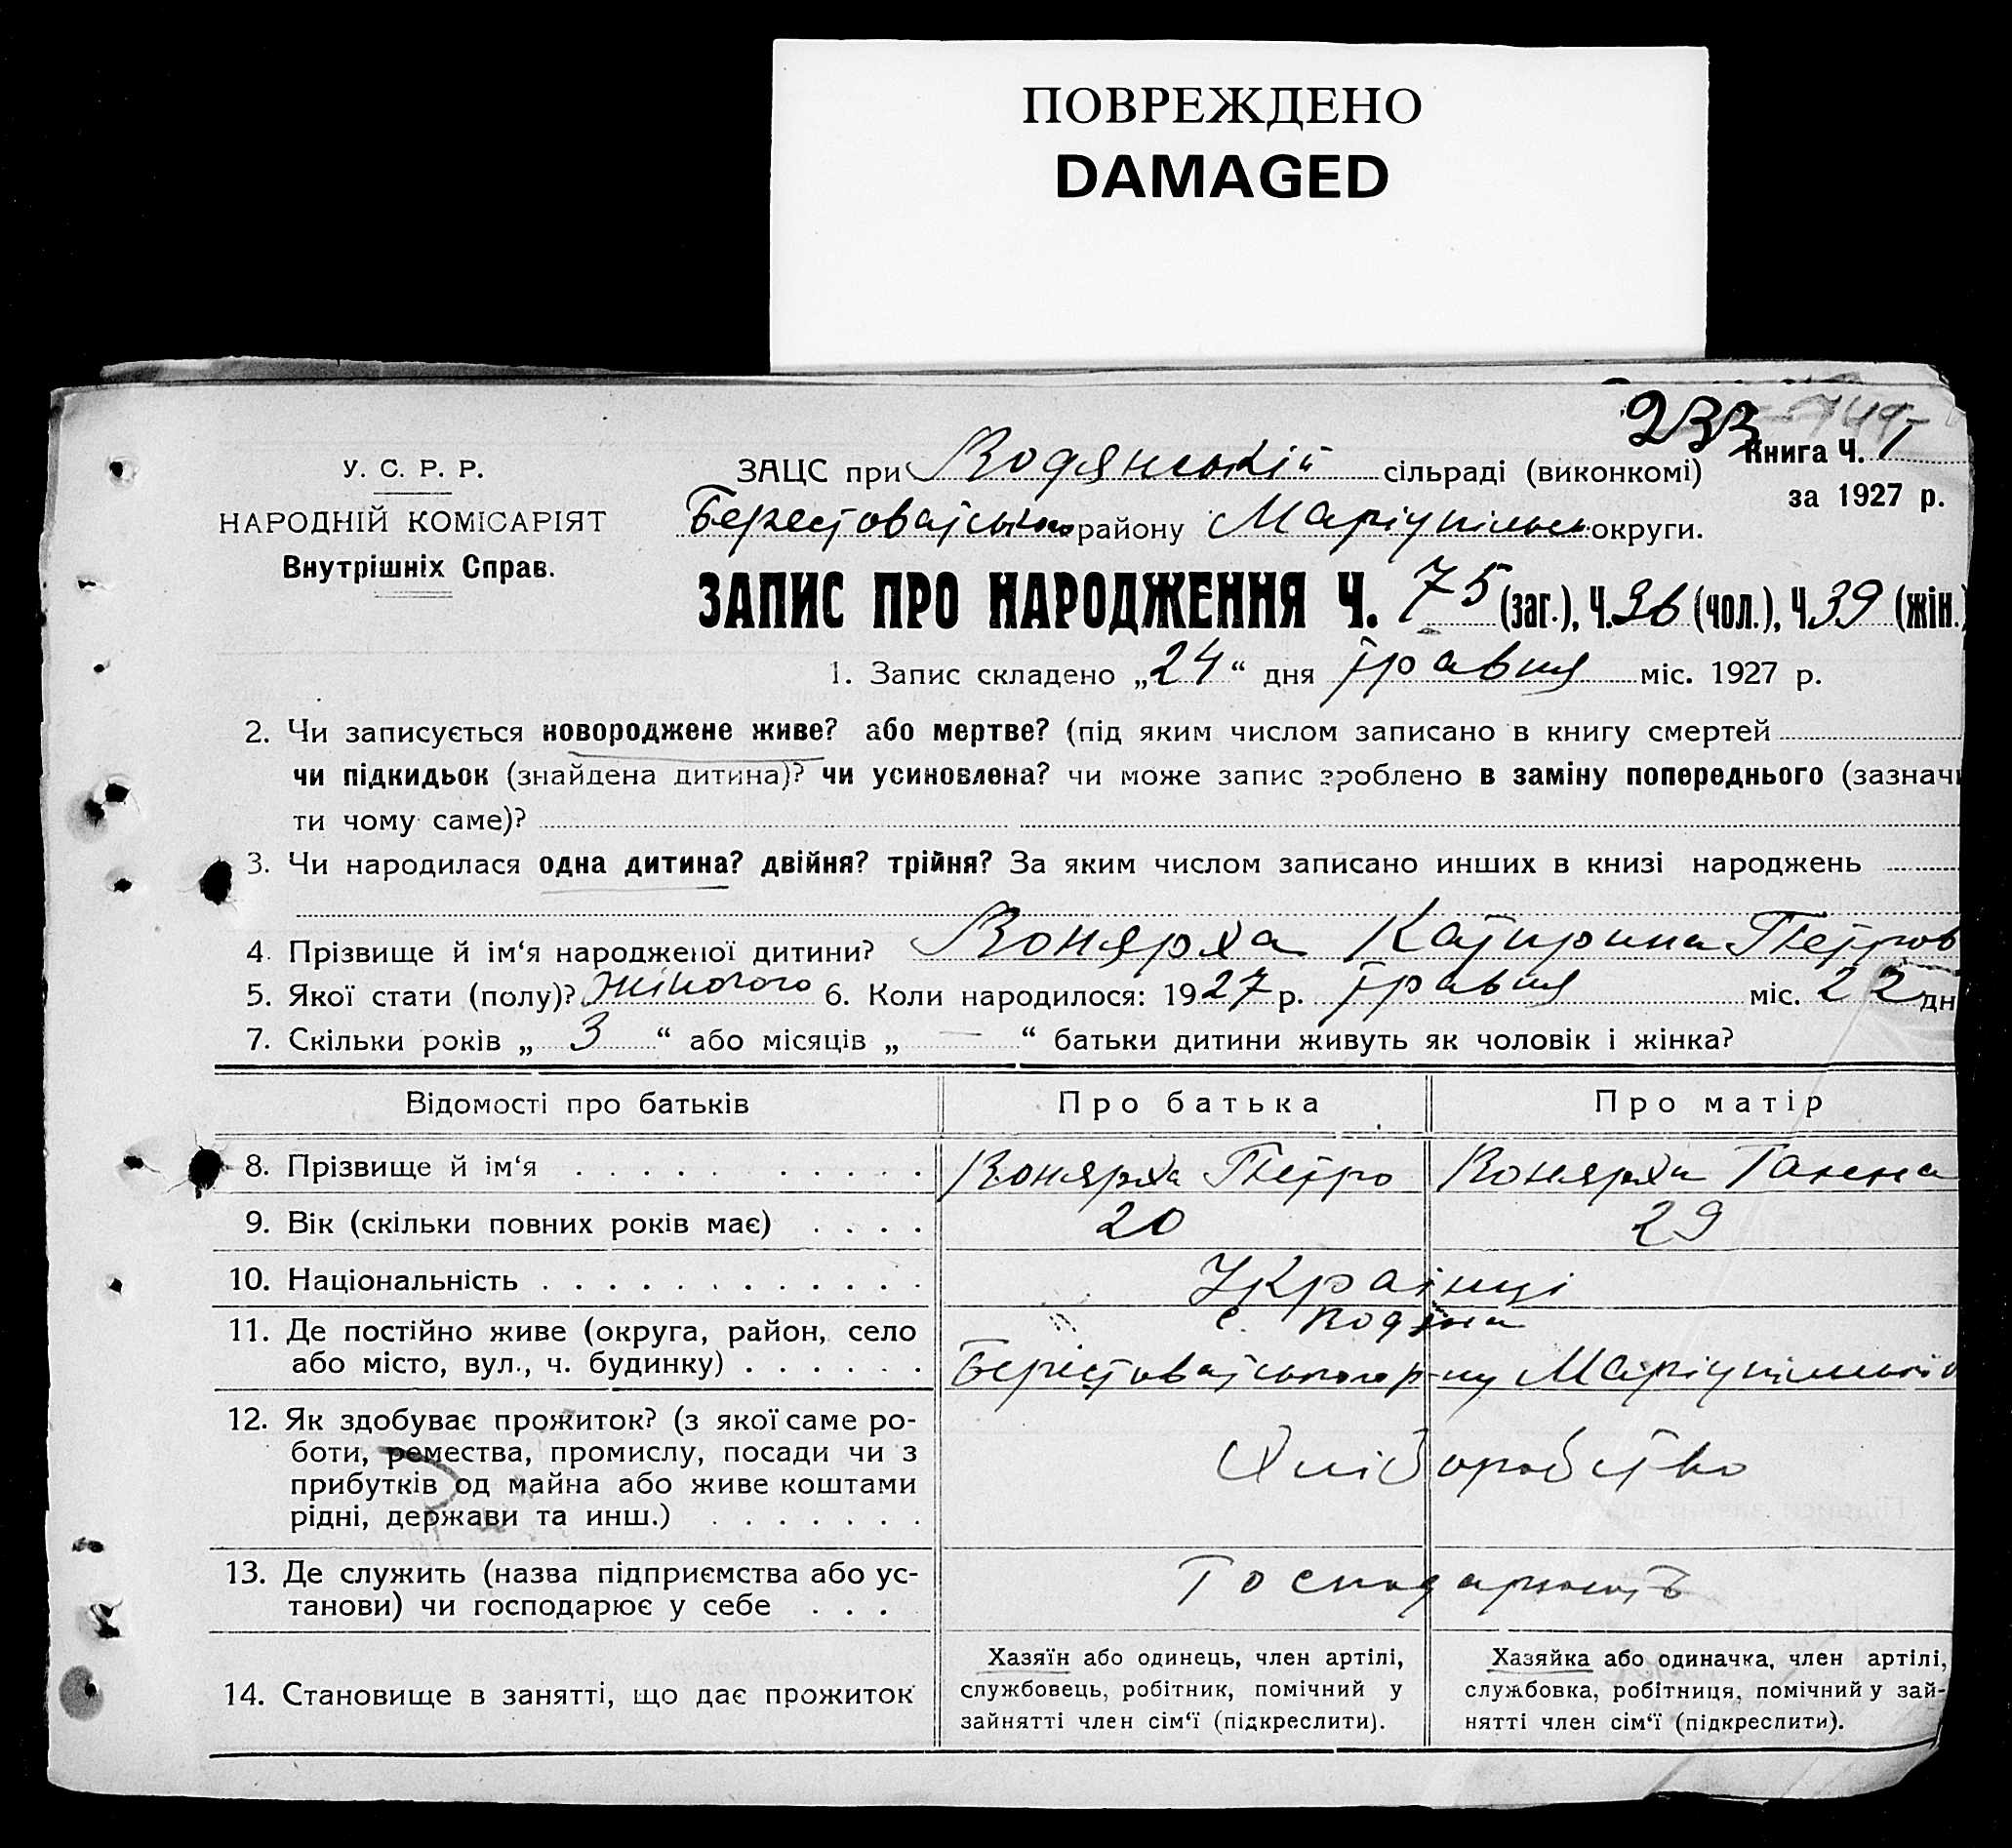 ПОВРЕЖДЕНО
DAMAGED
233
Книга Ч. 1
за 1927 р.
У. С. Р. Р.
НАРОДНІЙ КОМІСАРІЯТ
Внутрішніх Справ.
ЗАЦС при Водянській сільраді (виконкомі)
Берестоватського району Маріупільсь округи.
ЗАПИС ПРО НАРОДЖЕННЯ Ч. 75 (заг.), Ч. 36 (чол.), Ч. 39 (жін.)
1. Запис складено „24“ дня травня міс. 1927 р.
2. Чи записується новороджене живе? або мертве? (під яким числом записано в книгу смертей
чи підкидьок (знайдена дитина)? чи усиновлена? чи може запис зроблено в заміну попереднього (зазначи
ти чому саме)?
3. Чи народилася одна дитина? двійня? трійня? За яким числом записано инших в книзі народжень
4. Прізвище й ім‘я народженої дитини? Вонярха Катирина Петров
5. Якої стати (полу)? жіночого 6. Коли народилося: 1927 р. травня міс. 22 дн
7. Скільки років „ 3 “ або місяців „ — “ батьки дитини живуть як чоловік і жінка?
Відомості про батьків Про батька Про матір
8. Прізвище й ім‘я Вонярха Петро Вонярха Ганна
9. Вік (скільки повних років має) 20 29
10. Національність Українці
11. Де постійно живе (округа, район, село с. Водяна
або місто, вул., ч. будинку) Берестоватського р-ну Маріупільської
12. Як здобуває прожиток? (з якої саме ро-
боти, ремества, промислу, посади чи з Хліборобство
прибутків од майна або живе коштами
рідні, держави та инш.)
13. Де служить (назва підприємства або ус- Господарюють
танови) чи господарює у себе
14. Становище в занятті, що дає прожиток
Хазяїн або одинець, член артілі,
службовець, робітник, помічний у
зайнятті член сім‘ї (підкреслити).
Хазяйка або одиначка, член артілі,
службовка, робітниця, помічний у зай-
нятті член сім‘ї (підкреслити).